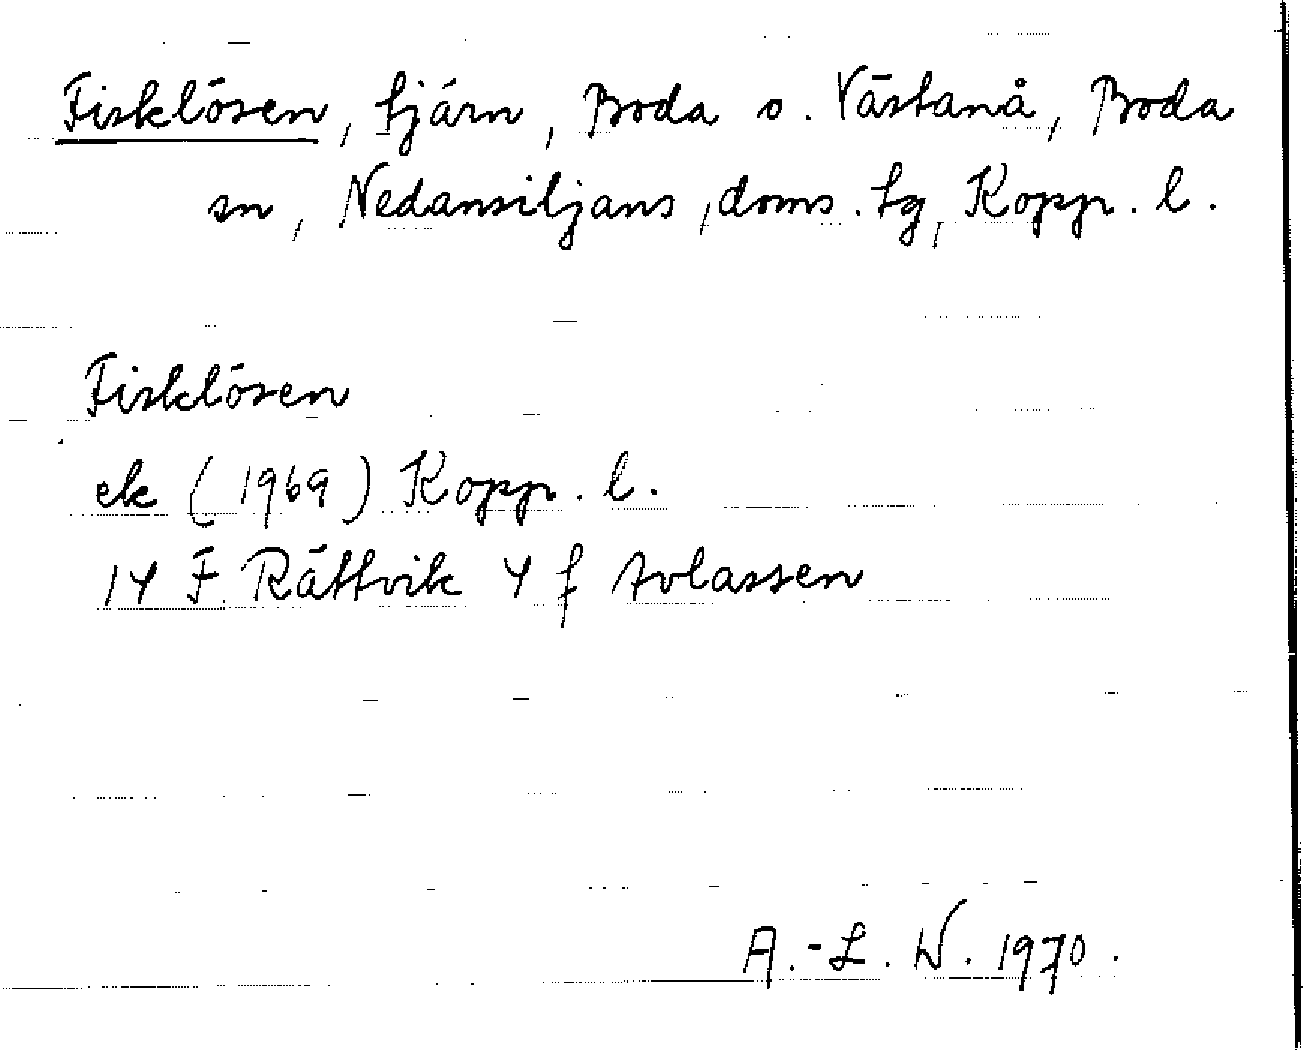 Fisklösen, tjärn, Boda o. Västanå, Boda
sn, Nedansiljans, doms. lg, Kopp. l.
Fisklösen
ek (1969) Kopp. l.
14 F Rättvik 4 f Avlassen
A.-L. W. 1970.